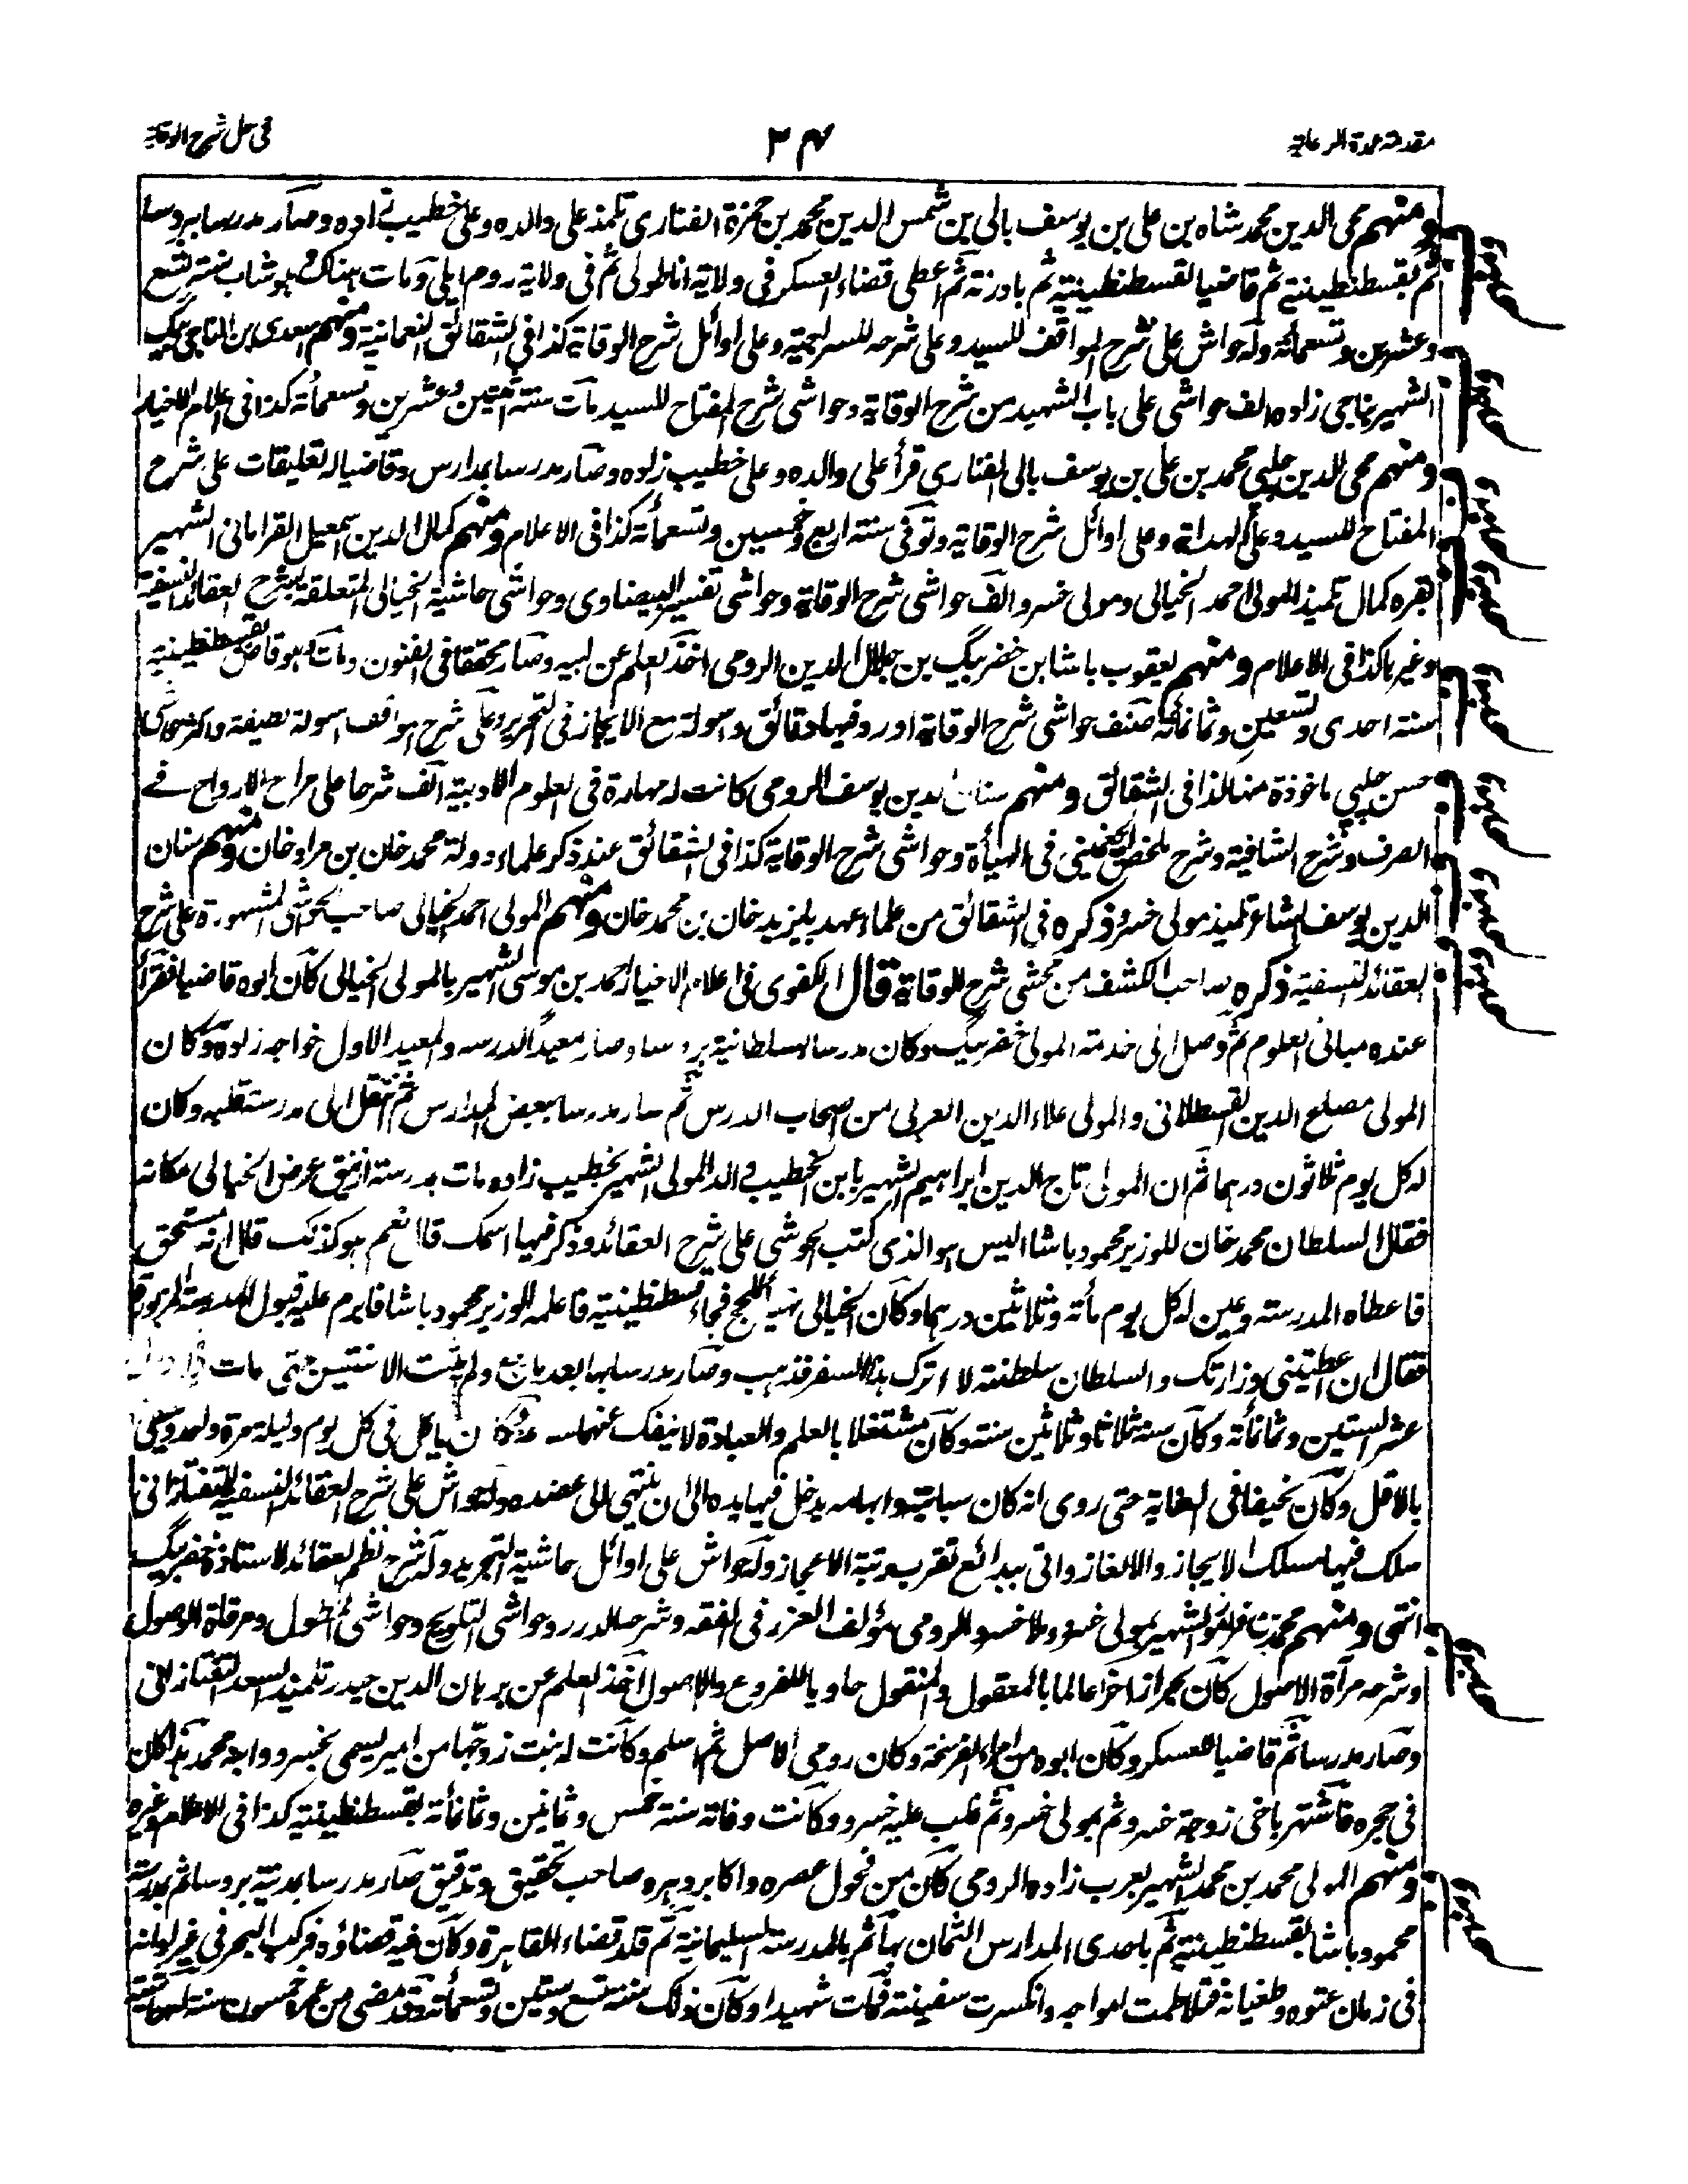 مقدمة عمدة الرعاية
٢٤
في حل شرح الوقاية
ومنهم محي الدين محمد شاه بن علي بن يوسف بالي بن شمس الدين محمد بن حمزة الفناري تلمذ على والده وعلى خطيب زاده وصار مدرسا ببروسا
ثم بقسطنطينية ثم قاضيا لقسطنطينية ثم بادرنة ثم اعطى قضاء العسكر في ولاية اناطولي ثم في ولاية روم ايلي ومات هناك وهو شاب سنة تسع
وعشرين وتسعمائة وله حواش على شرح المواقف للسيد وعلى شرحه للسراجية وعلى اوائل شرح الوقاية كذا في الشقائق النعمانية ومنهم سعدي بن الناجي بيك
الشهير بناجي زاده الف حواشي على باب الشهيد من شرح الوقاية وحواشي شرح المفتاح للسيد مات سنة اثنتين وعشرين وتسعمائة كذا في اعلام الاخيار
ومنهم محي الدين چلپي محمد بن علي بن يوسف بالي الفناري قرأ على والده وعلى خطيب زاده وصار مدرسا بمدارس وقاضيا له تعليقات على شرح
المفتاح للسيد وعلى الهداية وعلى اوائل شرح الوقاية وتوفي سنة اربع وخمسين وتسعمأة كذا في الاعلام ومنهم كمال الدين اسمعيل القراماني الشهير
بقره كمال تلميذ المولى احمد الخيالي ومولى خسرو الف حواشي شرح الوقاية وحواشي تفسير البيضاوي وحواشي حاشية الخيالي المتعلقة بشرح العقائد النسفية
وغيرها كذا في الاعلام ومنهم يعقوب باشا بن خضر بيگ بن جلال الدين الرومي اخذ العلم عن ابيه وصار محققا في الفنون ومات وهو قاض بقسطنطينية
سنة احدى وتسعين وثمانمائة صنف حواشي شرح الوقاية اورد فيها دقائق واسولة مع الايجاز في التحرير وعلى شرح المواقف اسولة لطيفة واكثر حواشي
حسن چلپي ماخوذة منها كذا في الشقائق ومنهم سنان الدين يوسف الرومي كانت له مهارة في العلوم الادبية الف شرحا على مراح الارواح في
الصرف وشرح الشافية وشرح ملخص الچغميني في الهيأة وحواشي شرح الوقاية كذا في الشقائق عند ذكر علماء دولة محمد خان بن مراد خان ومنهم سنان
الدين يوسف الشاعر تلميذ مولى خسرو ذكره في الشقائق من علماء عهد بايزيد خان بن محمد خان ومنهم المولى احمد الخيالي صاحب الحواشي المشهورة على شرح
العقائد النسفية ذكره صاحب الكشف من محشي شرح الوقاية قال الكفوي في اعلام الاخيار احمد بن موسى الشهير بالمولى الخيالي كان ابوه قاضيا فقرأ
عنده مباني العلوم ثم وصل الى خدمة المولى خضر بيگ وكان مدرسا بسلطانية بروسا وصار معيد الدرسه والمعيد الاول خواجه زاده وكان
المولى مصلح الدين القسطلاني والمولى علاء الدين العربي من اصحاب الدرس ثم صار مدرسا ببعض المدارس ثم انتقل الى مدرسة فلبه وكان
له كل يوم ثلاثون درهما ثم ان المولى تاج الدين ابراهيم الشهير بابن الخطيب والد المولى الشهير بخطيب زاده مات بمدرسة ازنيق عرض الخيالي مكانه
فقال السلطان محمد خان للوزير محمود باشا اليس هو الذي كتب الحواشي على شرح العقائد وذكر فيها اسمك قال نعم هو كذلك قال انه مستحق
فاعطاه المدرسة وعين له كل يوم مأة وثلاثين درهما وكان الخيالي تهيأ للحج فجاء قسطنطينية فاعلمه الوزير محمود باشا فابرم عليه قبول المدرسة المزبورة
فقال ان اعطيتني وزارتك والسلطان سلطنته لا اترك هذا السفر فذهب وصار مدرسا بها بعد ما رجع ولم يلبث الا سنتين حتى مات
عشر الستين وثمانمأة وكان سنه ثلاثا وثلاثين سنة وكان مشتغلا بالعلم والعبادة لا ينفك عنهما وكان ياكل في كل يوم وليلة مرة واحدة
بالاقل وكان نحيفا في الغاية حتى روي انه كان سبابته وابهامه يدخل فيها يده الى ان ينتهي الى عضده وله حواش على شرح العقائد النسفية للتفتازاني
سلك فيها مسلك الايجاز والالغاز واتى ببدائع تقرب رتبة الاعجاز وله حواش على اوائل حاشية التجريد وله شرح نظم العقائد لاستاذه خضر بيگ
انتهى ومنهم محمد بن فراموز الشهير بمولى خسرو وملا خسرو الرومي مؤلف الغرر في الفقه وشرحه الدرر وحواشي التلويح وحواشي المطول ومرقاة الوصول
وشرحه مرآة الاصول كان بحرا زاخرا عالما بالمعقول والمنقول حاويا للفروع والاصول اخذ العلم عن برهان الدين حيدر تلميذ السعد التفتازاني
وصار مدرسا ثم قاضيا للعسكر وكان ابوه من امراء الفرنخة وكان رومي الاصل ثم اسلم وكانت له بنت زوجها من امير يسمى بخسرو وابنه محمد هذا كان
في حجره فاشتهر باخي زوجة خسرو ثم بمولى خسرو ثم غلب عليه خسرو وكانت وفاته سنة خمس وثمانين وثمانمأة بقسطنطينية كذا في الاعلام وغيره
ومنهم المولى محمد بن محمد الشهير بعرب زاده الرومي كان من فحول عصره واكابر دهره صاحب تحقيق وتدقيق صار مدرسا بمدينة بروسا ثم بمدرسة
محمود باشا بقسطنطينية ثم باحدى المدارس الثمان بها ثم بالمدرسة السليمانية ثم قلد قضاء القاهرة وكان فيه قضاؤه فركب البحر في غير اوانه
في زمان عتوه وطغيانه فتلاطمت امواجه وانكسرت سفينته فمات شهيدا وكان ذلك سنة تسع وستين وتسعمأة وقد مضى من عمره خمسون سنة